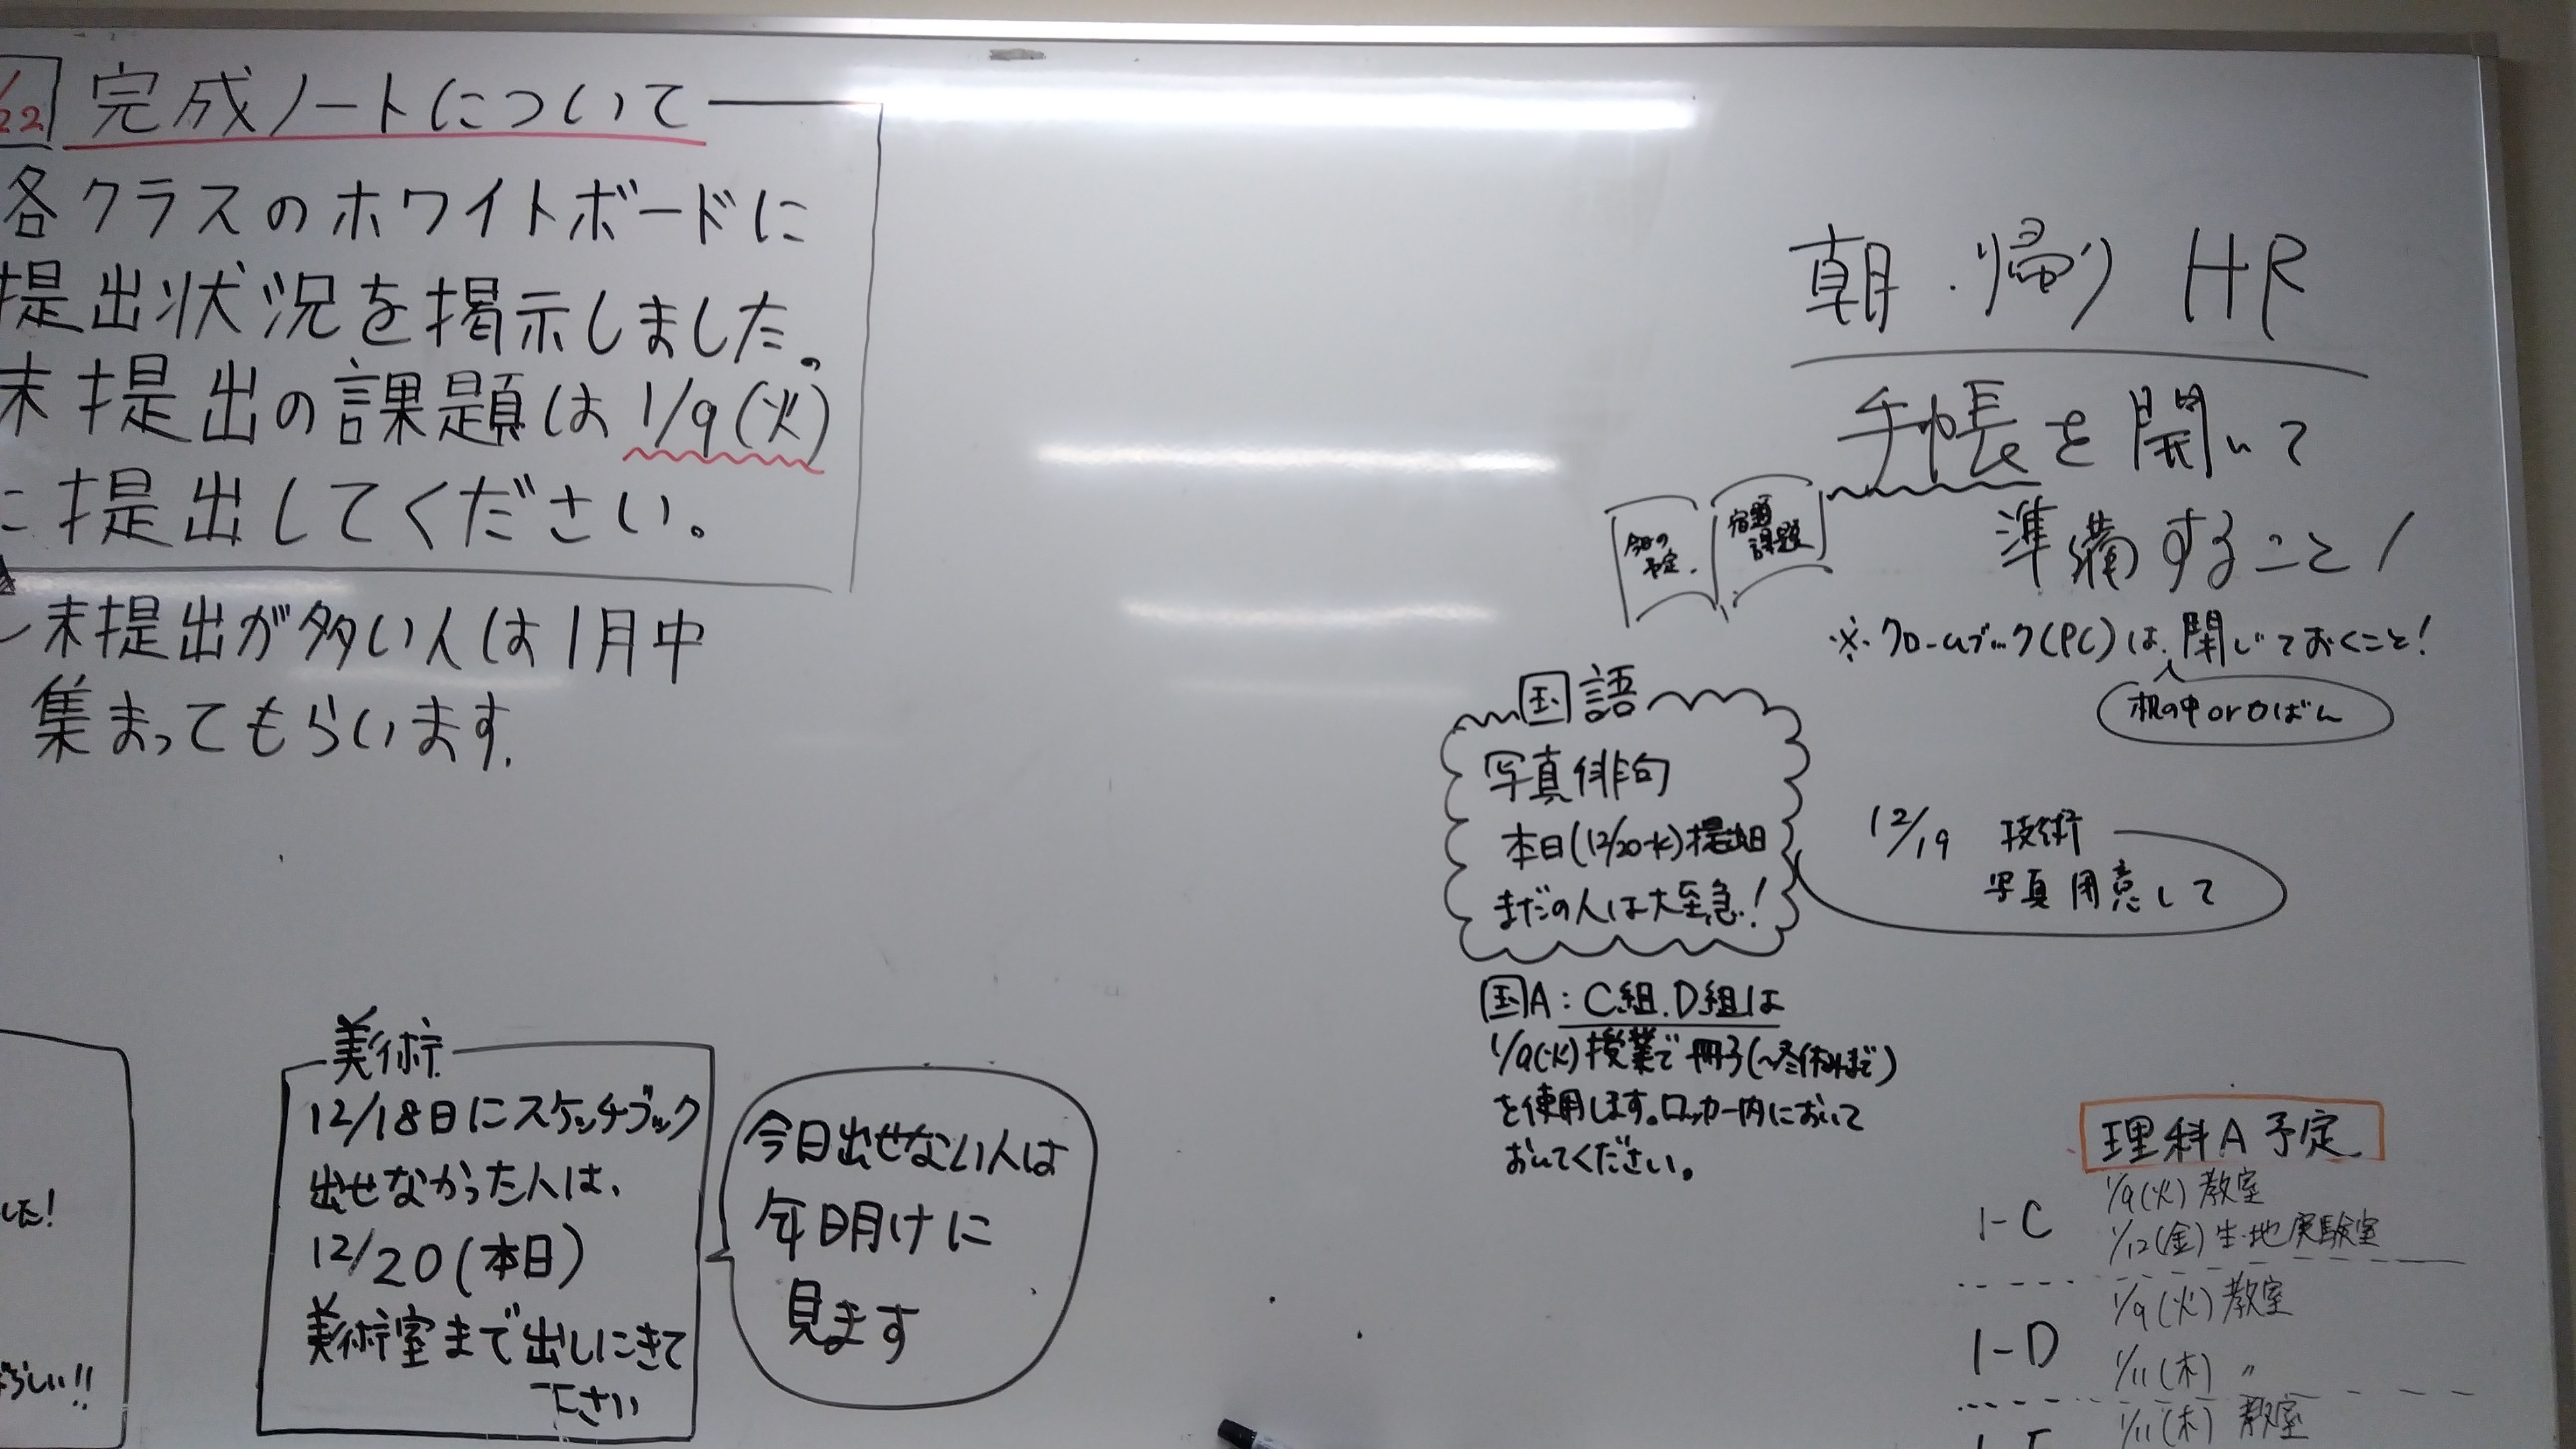 /22 完成ノートについて
各クラスのホワイトボードに
提出状況を掲示しました。
未提出の課題は 1/9(火)
に提出してください。
未提出が多い人は1月中
集まってもらいます.
した!
らしい!!
美術
12/18日にスケッチブック
出せなかった人は、
12/20(本日)
美術室まで出しにきて
下さい
今日出せない人は
年明けに
見ます
朝・帰り HR
手帳を開いて
準備すること!
今日の
予定.
宿題
課題
※クロームブック(PC)は、閉じておくこと!
机の中orかばん
国語
写真俳句
本日(12/20水)提出日
まだの人は大至急!
12/19 技術
写真用意して
国A:C組.D組は
1/9(火)授業で冊子(~冬休みまで)
を使用します。ロッカー内において
おいてください。
理科A予定
1-C 1/9(火) 教室
1/12(金) 生・地実験室
1-D 1/9(火) 教室
1/11(木) 〃
1/11(木) 教室